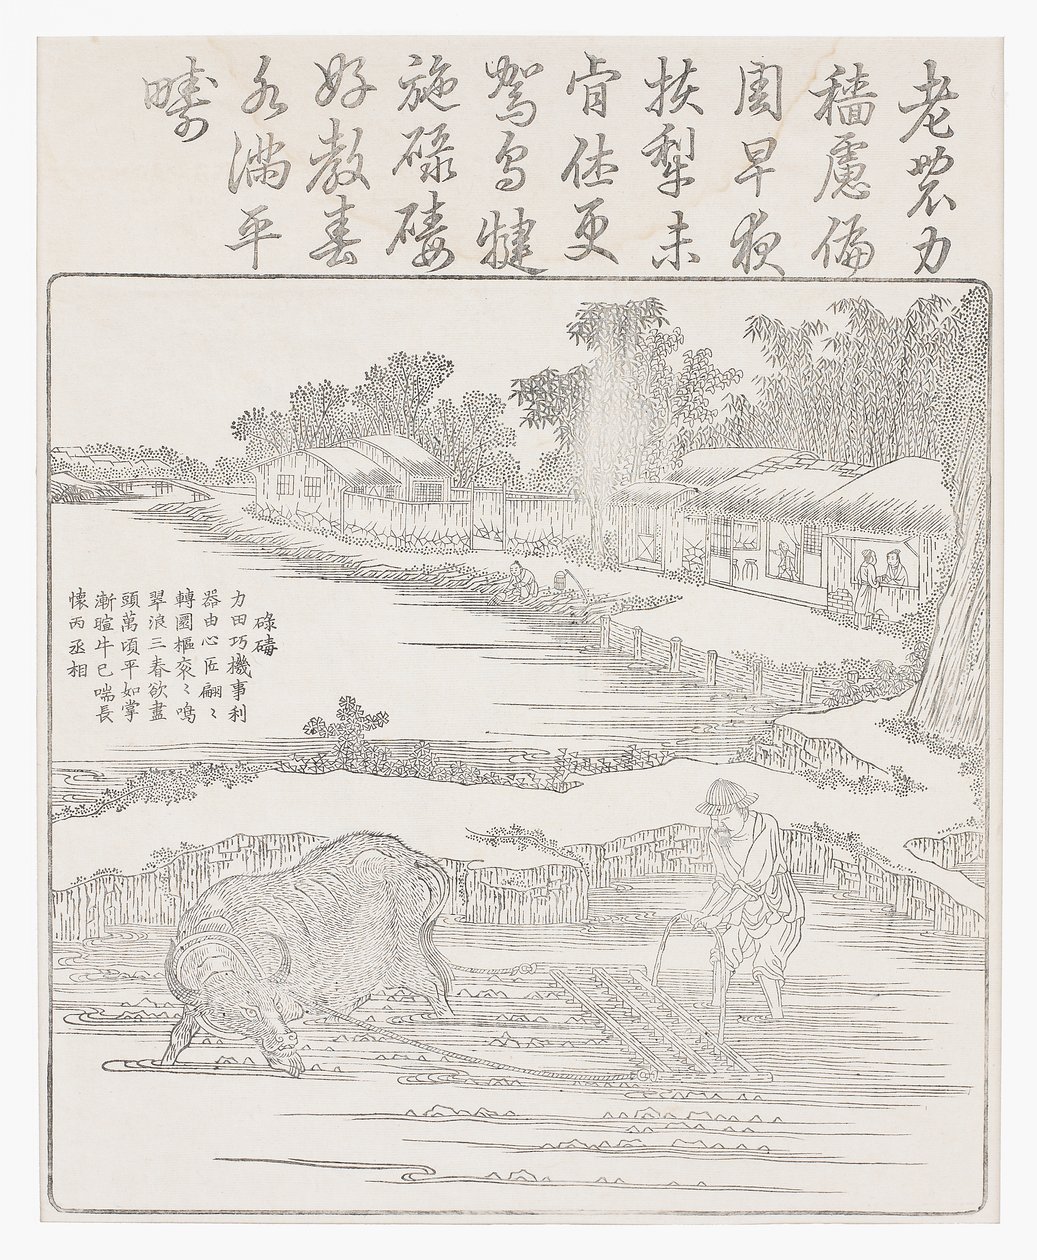 老農力
穡慮偏
周早夜
扶犁未
肯休更
駕烏犍
施碌碡
好教春
水滿平
疇
碌碡
力田巧機事利
器由心匠翩〻
轉圜樞衮〻鳴
翠浪三春欲盡
頭萬頃平如掌
漸暄牛已喘長
懷丙丞相